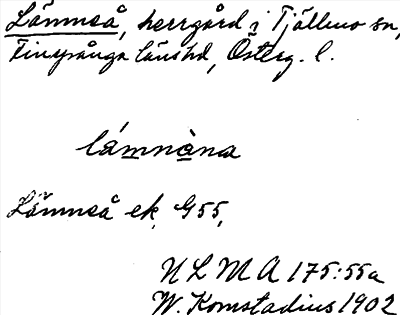 Lämmeå, herrgård i Tjällmo sn,
Finspånga länshd, Österg. l.
lámnàna
Lämmeå ek. G55,
N L M A 175:55a
W. Komstadius 1902